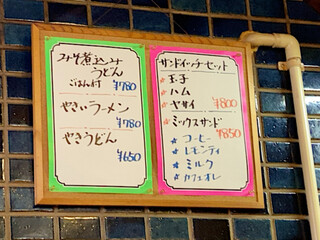 みそ煮込み
うどん
ごはん付 ¥780
やきそばラーメン
¥780
やきうどん
¥650
サンドイッチセット
★玉子
★ハム
★ヤサイ ¥800
★ミックスサンド
¥850
★コーヒー
★レモンティ
★ミルク
★カフェオレ